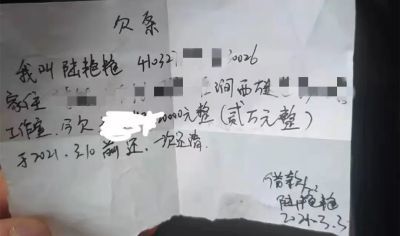 欠条
我叫 陆艳艳 41032 0026
家住 涧西
工作室. 今欠 0000元整(贰万元整)
于2021.3.10 前还. 一次还清.
借款人
陆艳艳
2021.3.3